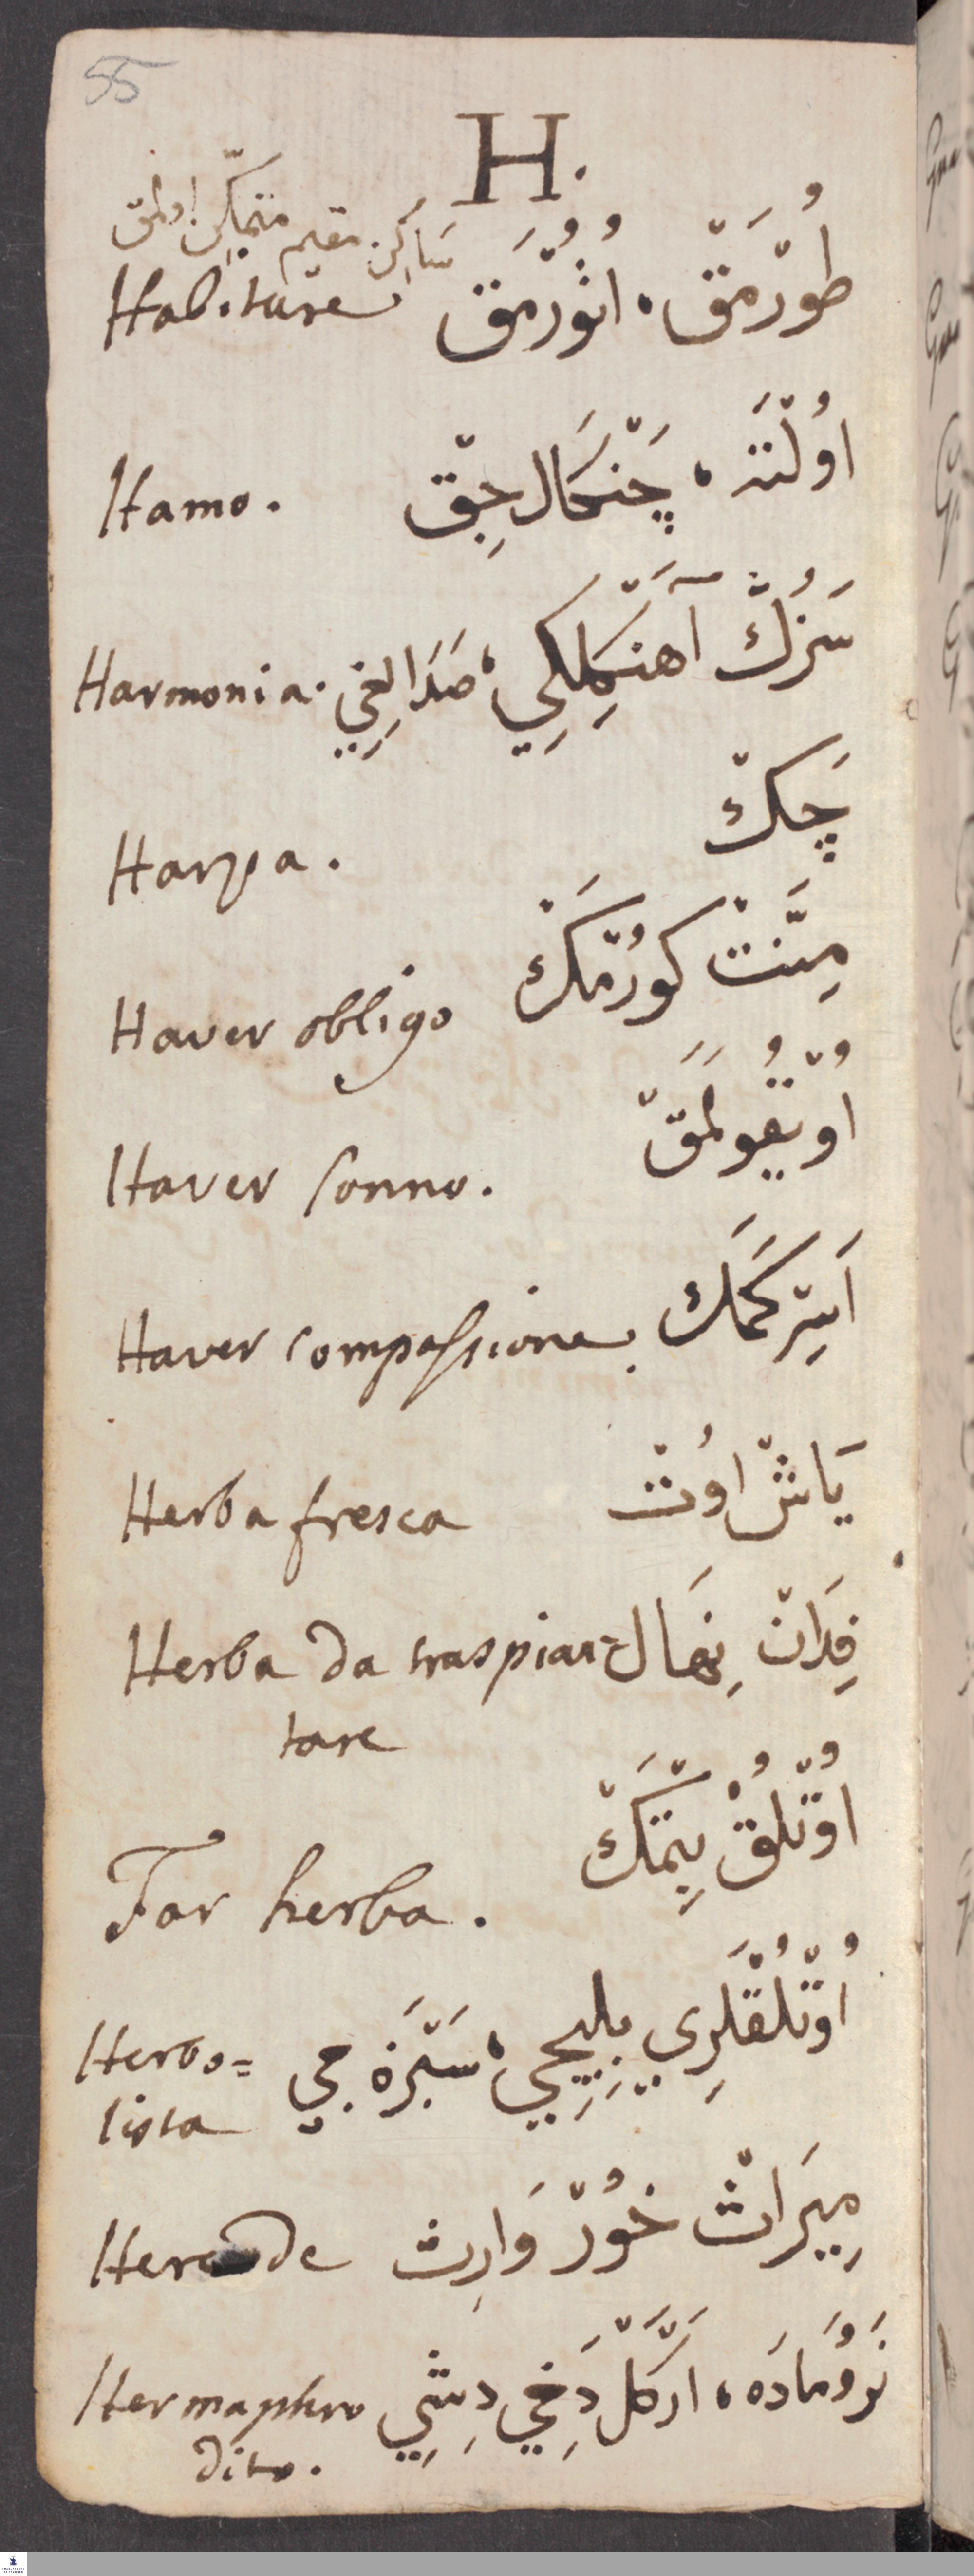 55
H.
ساكن مقيم متمكّن اولمق
Habitare طُوْرمَقْ، اُتُوْرمَق
Hamo. اُولْتَه، چَنْكَال جِقْ
Harmonia. سَزُكْ آهَنْكلِكِي، صَدَالِغِي
Harpa. چَكْ
Haver obligo مِنَّتْ كورْمَكْ
Haver sonno. اُويْقُولَمَقْ
Haver compassione. اَسِرْكَمَك
Herba fresca يَاشْ اوُتْ
Herba da traspian= فِدَانْ نِهَال
tare
Far herba. اُوْتْلُقْ بِتْمَكْ
Herbo= اُوْتْلُقْلَرِي بِلِيجِي، سَبْزَه جِي
lista
Herede مِيرَاثْ خُوْرْ وَارِث
Hermaphro نَرُومَادَه، اَرْكَكْ دَخِي دِشِي
dito.